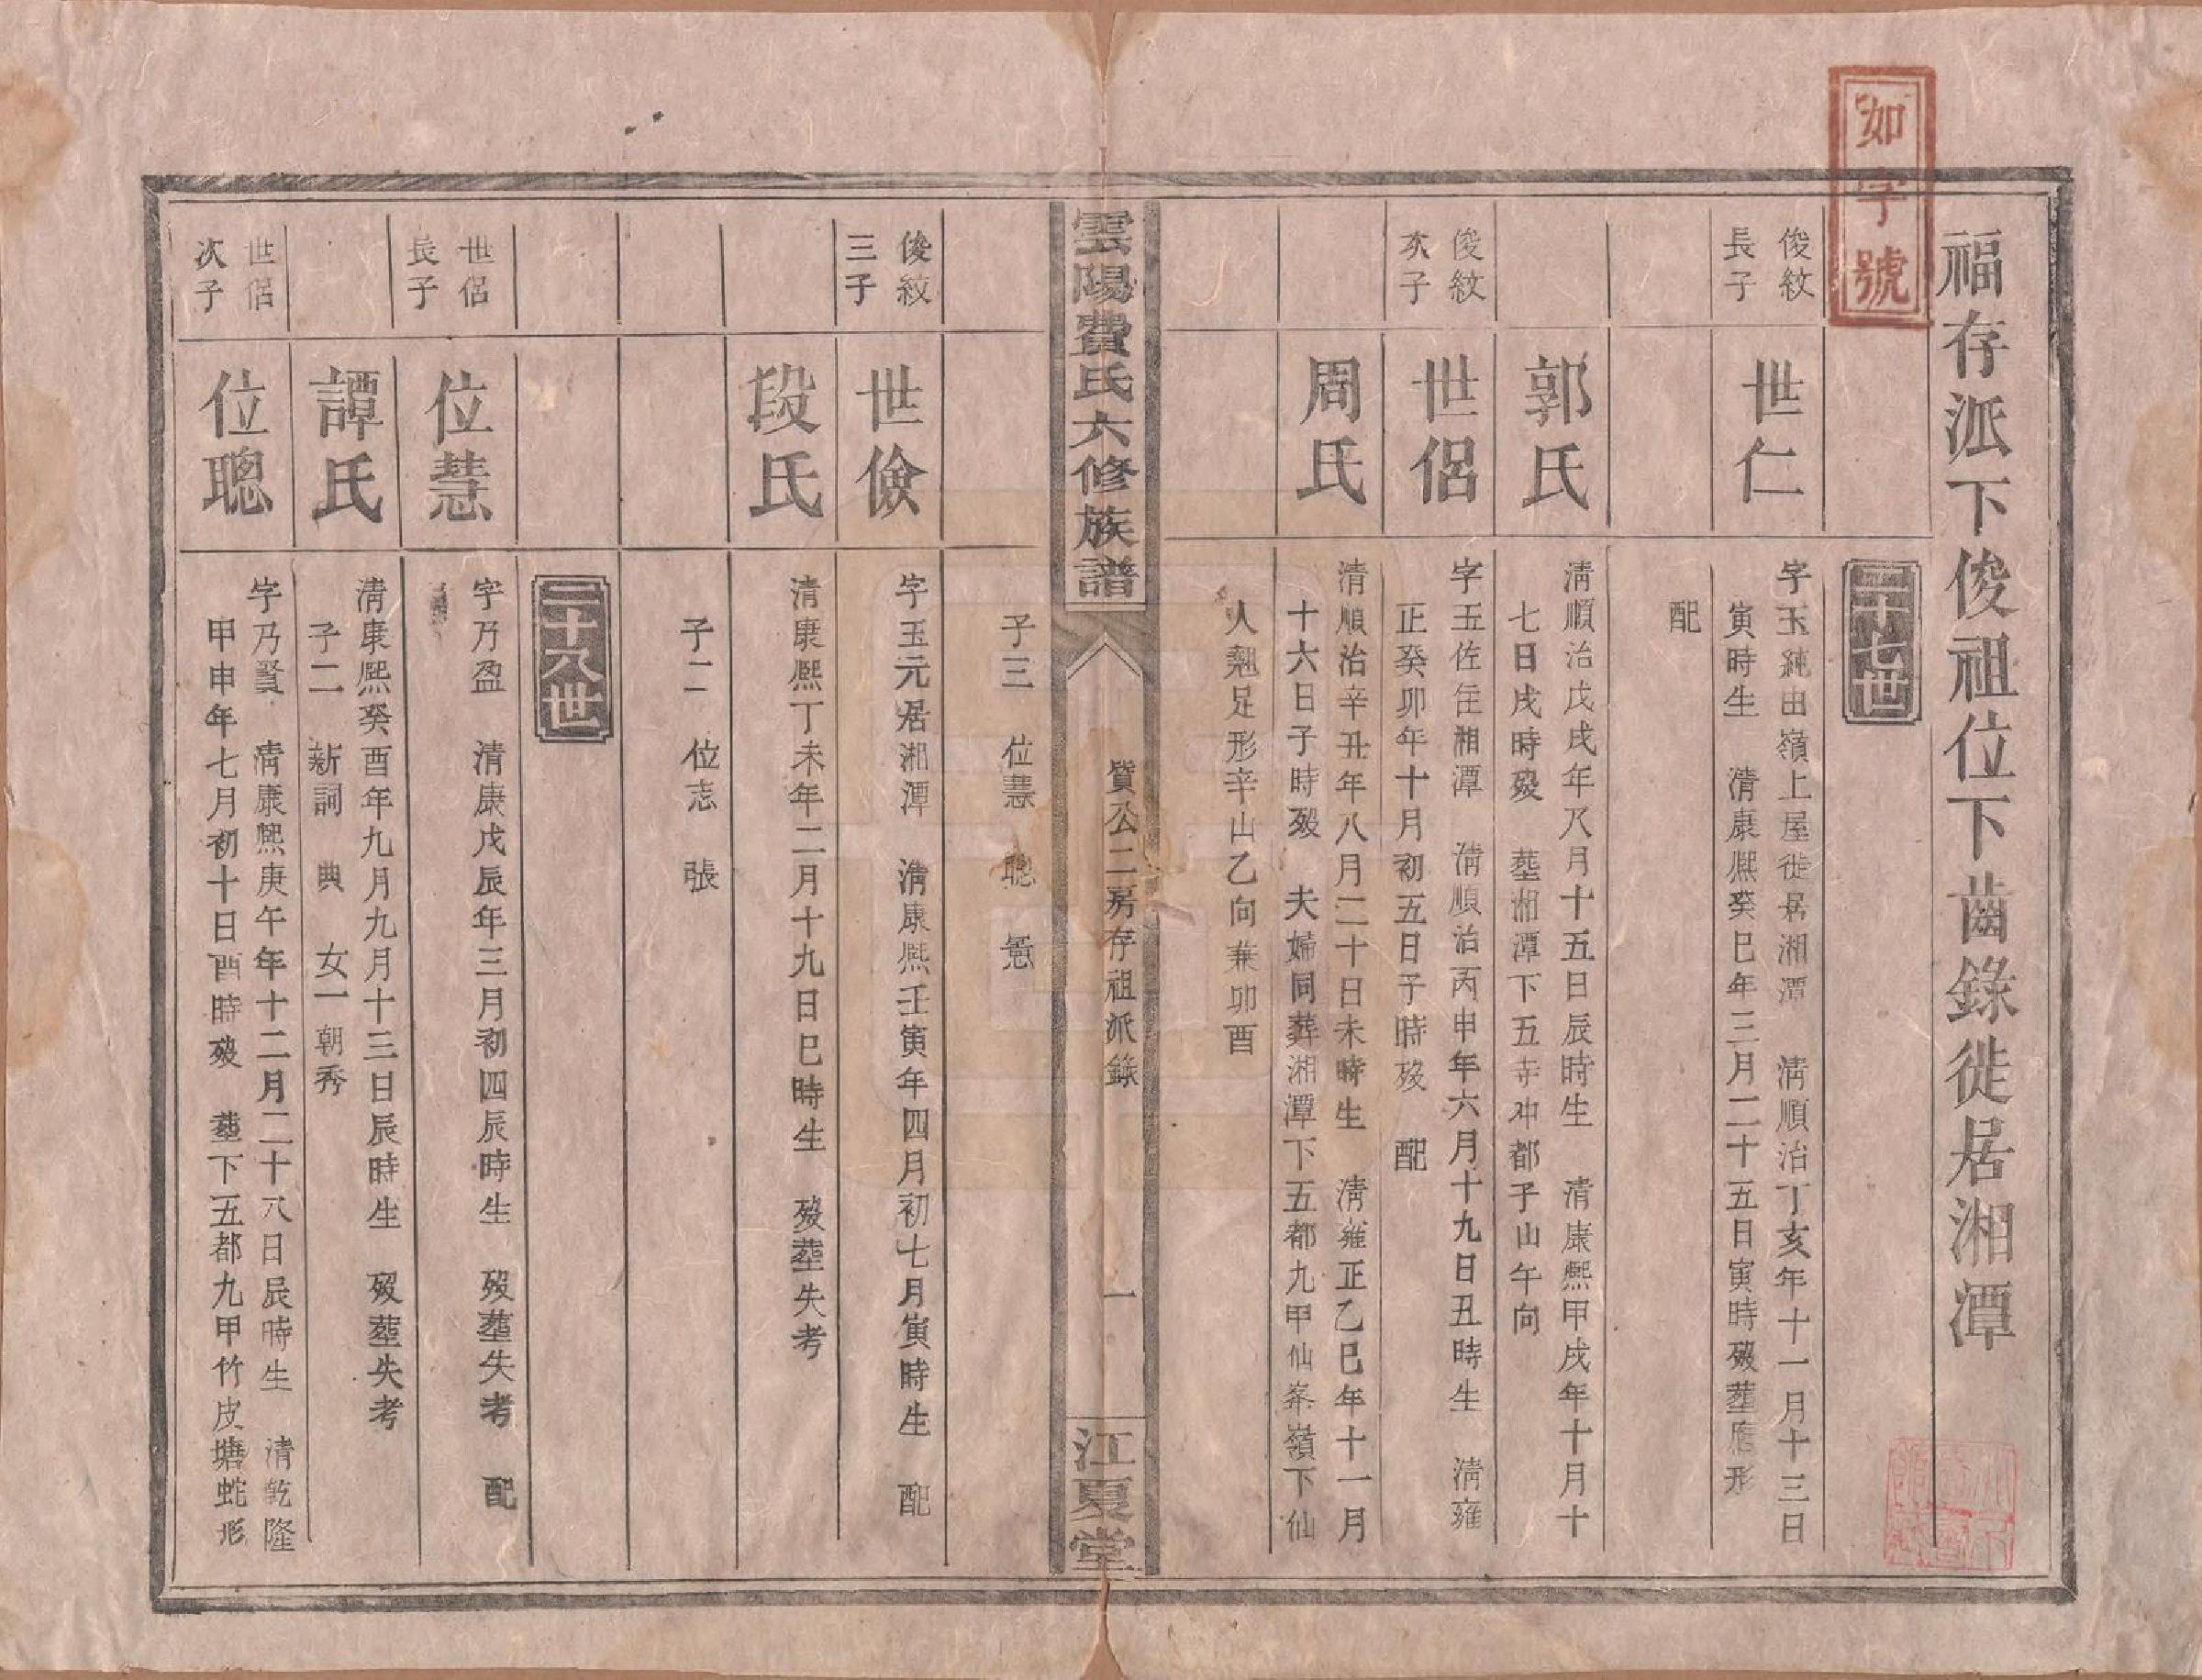 如字號
福存派下俊祖位下齒錄徙居湘潭
二十七世
俊紋長子
世仁
字玉純由嶺上屋徙居湘潭 清順治丁亥年十一月十三日
寅時生 清康熙癸巳年三月二十五日寅時歿葬 形
配
郭氏
清順治戊戌年八月十五日辰時生 清康熙甲戌年十月十
七日戌時歿 葬湘潭下五寺冲都子山午向
俊紋次子
世侣
字玉佐住湘潭 清順治丙申年六月十九日丑時生 清雍
正癸卯年十月初五日子時歿 配
周氏
清順治辛丑年八月二十日未時生 清雍正乙巳年十一月
十六日子時歿 夫婦同葬湘潭下五都九甲仙峯嶺下仙
人翹足形辛山乙向兼卯酉
雲陽費氏六修族譜
質公二房存祖派錄
一
江夏堂
子三 位慧 聰 憲
俊紋三子
世儉
字玉元居湘潭 清康熙壬寅年四月初七月寅時生 配
段氏
清康熙丁未年二月十九日巳時生 歿葬失考
子二 位志 張
二十八世
世侣長子
位慧
字乃盈 清康戊辰年三月初四辰時生 歿葬失考 配
譚氏
清康熙癸酉年九月九月十三日辰時生 歿葬失考
子二 新詞 典 女一朝秀
世侣次子
位聰
字乃賢 清康熙庚午年十二月二十八日辰時生 清乾隆
甲申年七月初十日酉時歿 葬下五都九甲竹皮塘蛇形